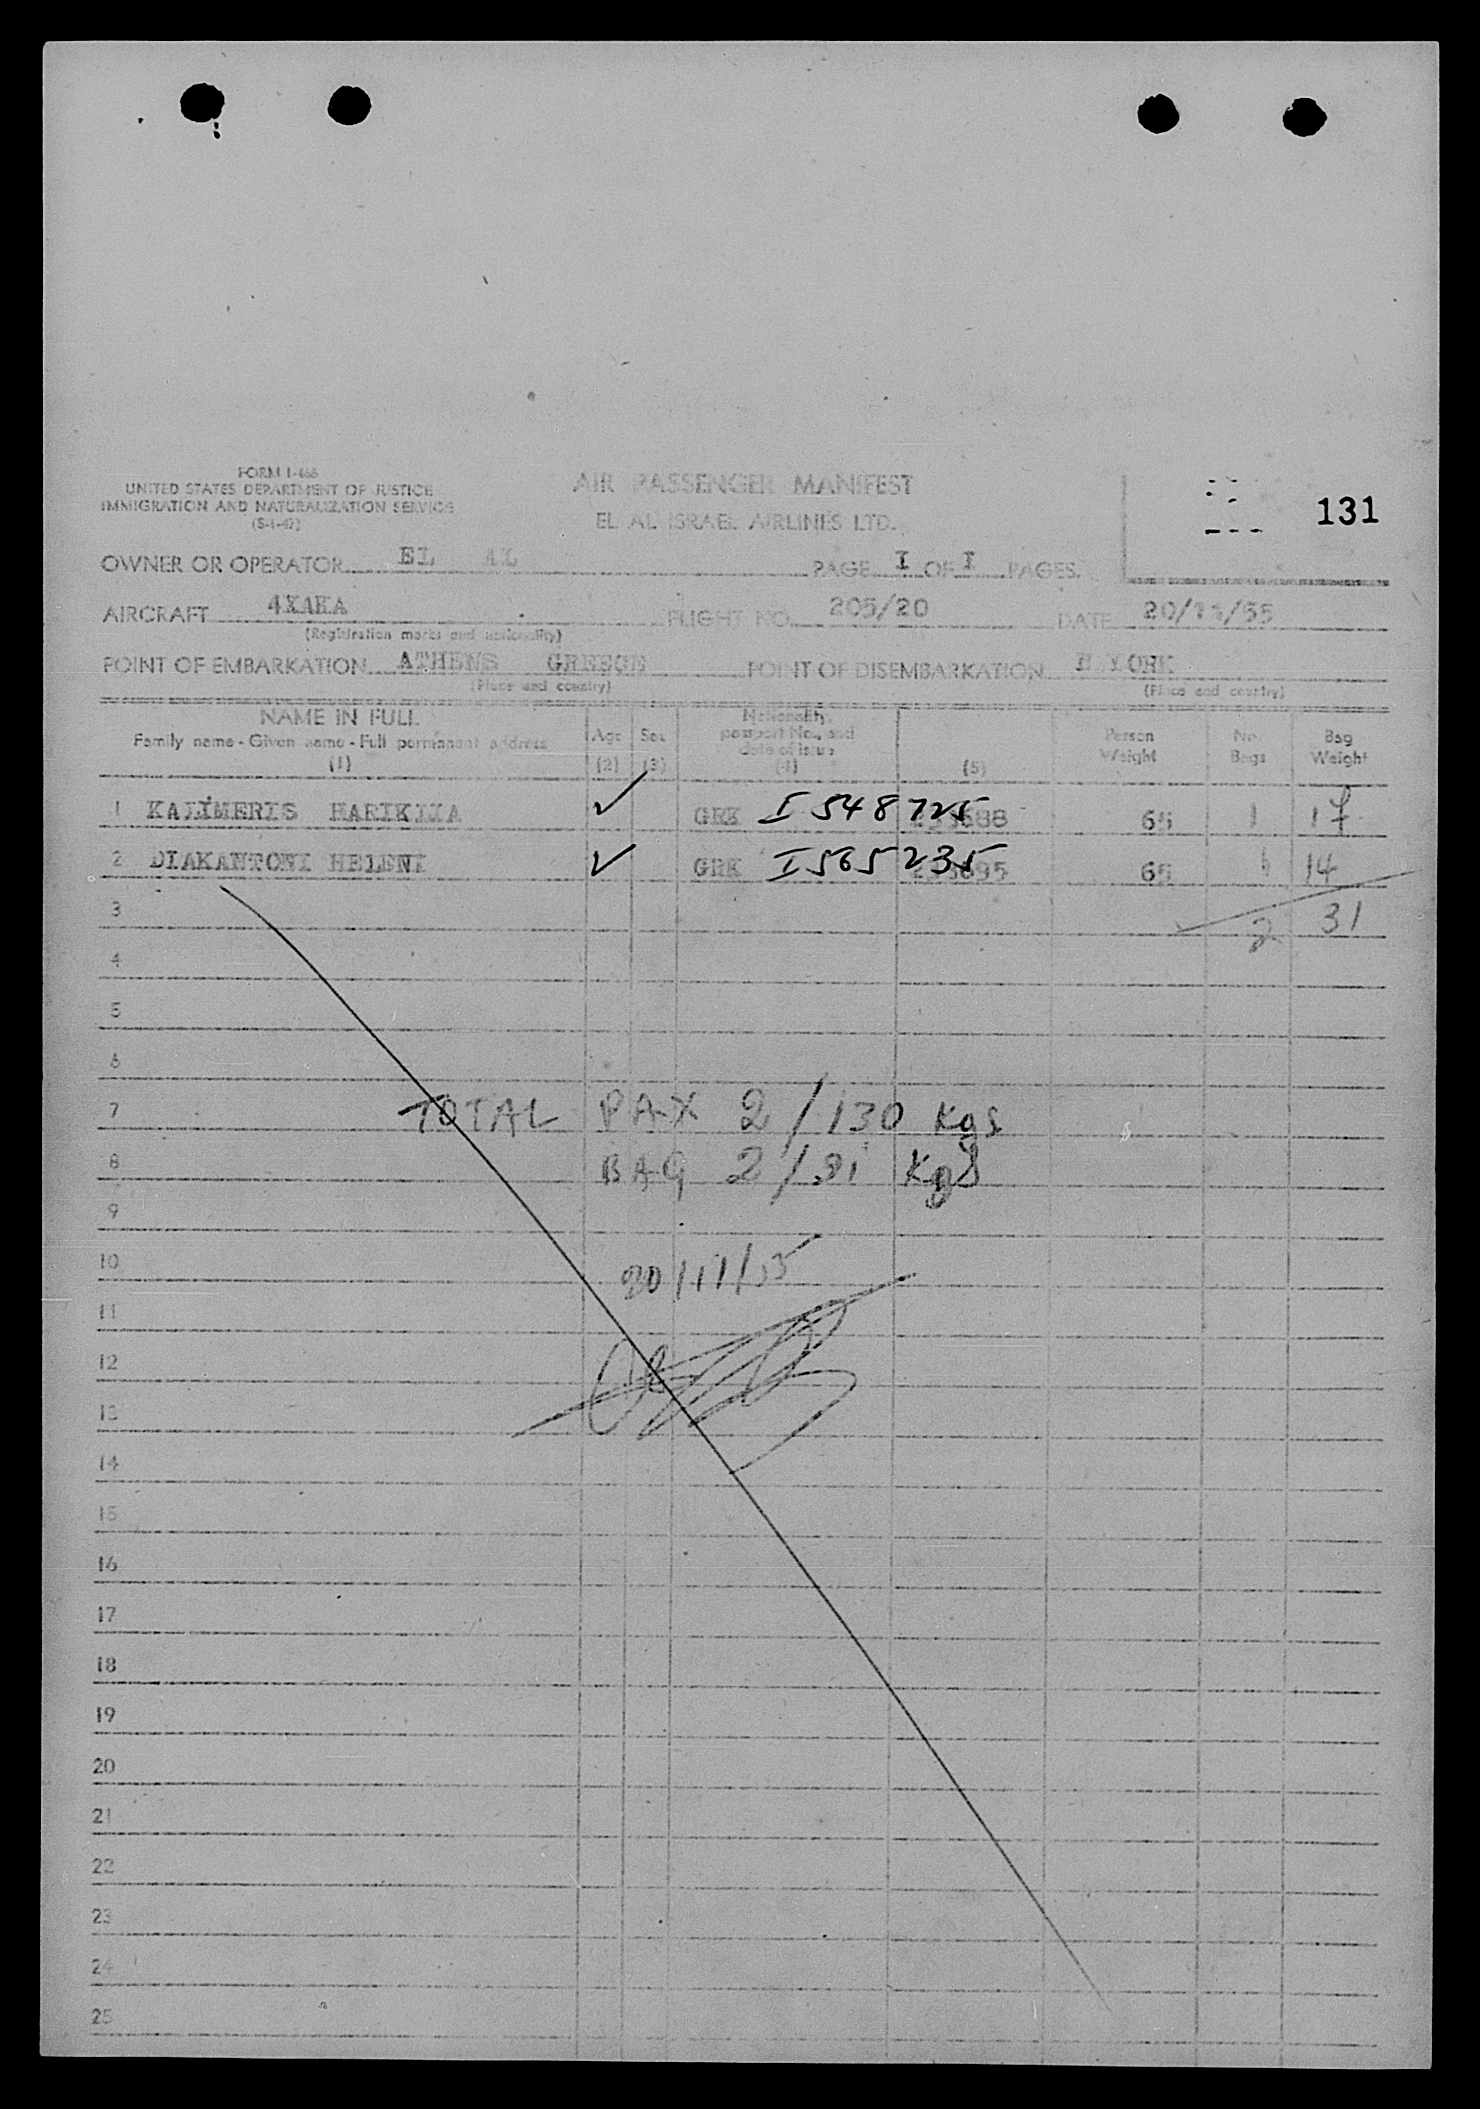 FORM I-466
UNITED STATES DEPARTMENT OF JUSTICE
IMMIGRATION AND NATURALIZATION SERVICE
(5-1-49)
AIR PASSENGER MANIFEST
EL AL ISRAEL AIRLINES LTD.
131
OWNER OR OPERATOR EL AL PAGE I OF I PAGES.
AIRCRAFT 4XAKA FLIGHT NO. 205/20 DATE 20/11/55
(Registration marks and nationality)
POINT OF EMBARKATION ATHENS GREECE POINT OF DISEMBARKATION N.YORK
(Place and country) (Place and country)
NAME IN FULL
Family name - Given name - Full permanent address
(1)
Age
(2)
Sex
(3)
Nationality,
passport No., and
date of issue
(4)
(5)
Person
Weight
No.
Bags
Bag
Weight
1 KALIMERIS HARIKLIA GRK I 548725 65 1 17
2 DIAKANTONI HELENI GRK I 565235 65 1 14
3 2 31
4
5
6
7 TOTAL PAX 2/130 Kgs
8 BAG 2/31 Kgs
9
10 20/11/55
11
12
13
14
15
16
17
18
19
20
21
22
23
24
25